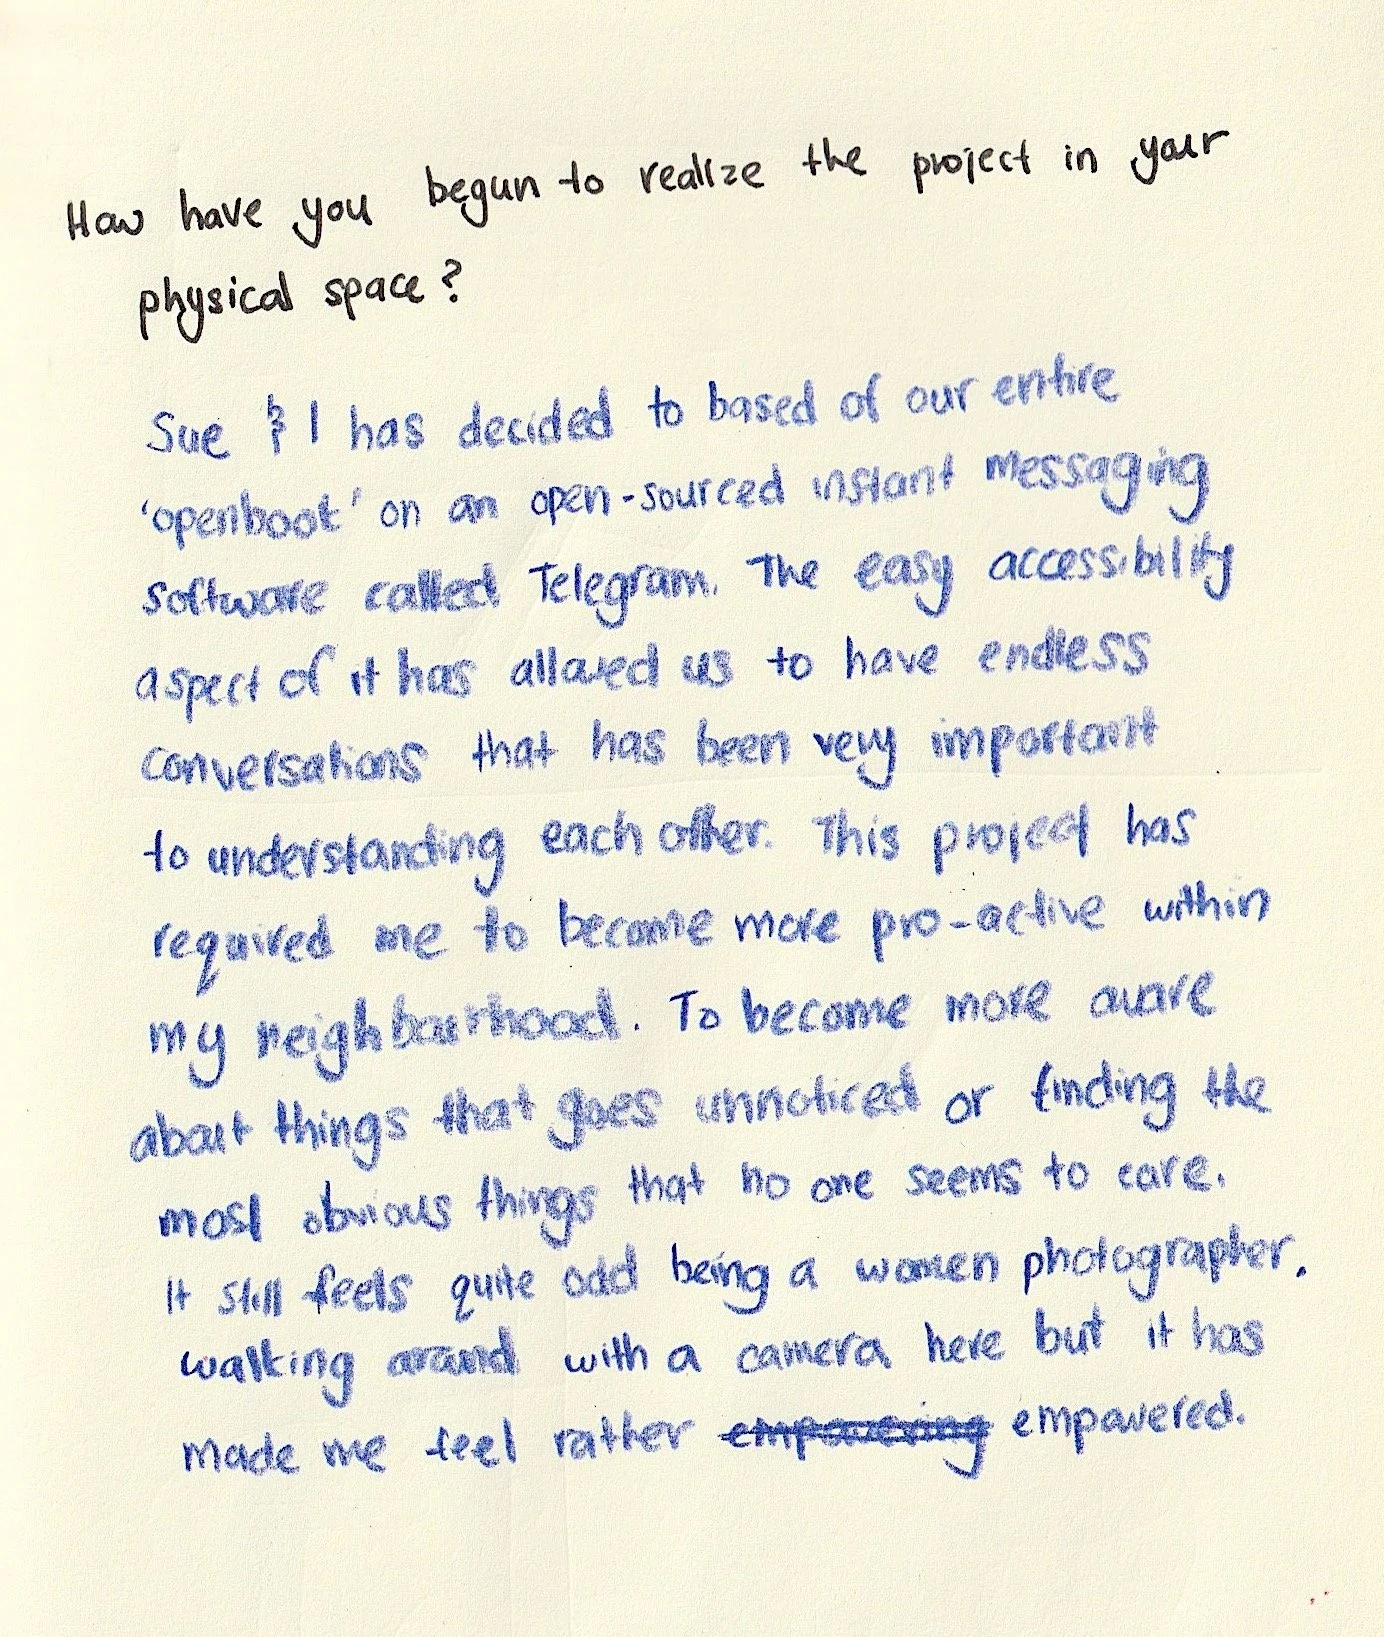 How have you begun to realize the project in your
physical space?
Sue & I has decided to based of our entire
'openbook' on an open-sourced instant messaging
software called Telegram. The easy accessibility
aspect of it has allowed us to have endless
conversations that has been very important
to understanding each other. This project has
required me to become more pro-active within
my neighbourhood. To become more aware
about things that goes unnoticed or finding the
most obvious things that no one seems to care.
It still feels quite odd being a women photographer.
walking around with a camera here but it has
made me feel rather empowering empowered.